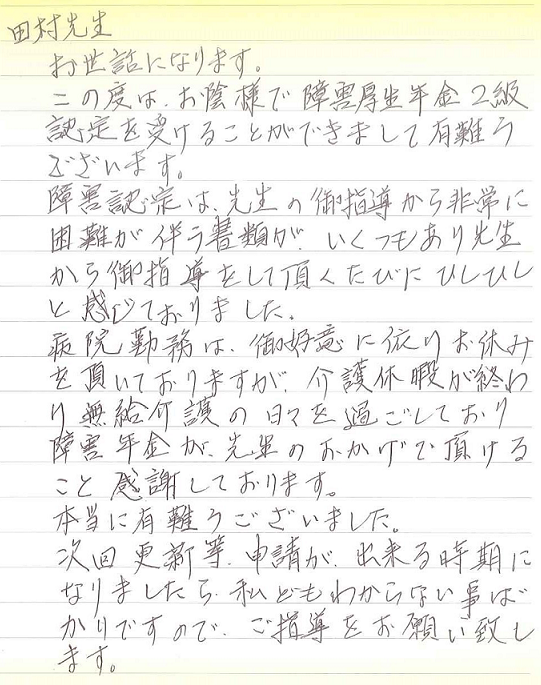 田村先生
お世話になります。
この度は、お陰様で障害厚生年金2級
認定を受けることができまして有難う
ございます。
障害認定は、先生の御指導から非常に
困難が伴う書類が、いくつもあり先生
から御指導をして頂くたびにひしひし
と感じておりました。
病院勤務は、御好意に依りお休み
を頂いておりますが、介護休暇が終わ
り無給介護の日々を過ごしており
障害年金が、先生のおかげで頂ける
こと感謝しております。
本当に有難うございました。
次回更新等、申請が、出来る時期に
なりましたら、私どもわからない事ば
かりですので、ご指導をお願い致し
ます。